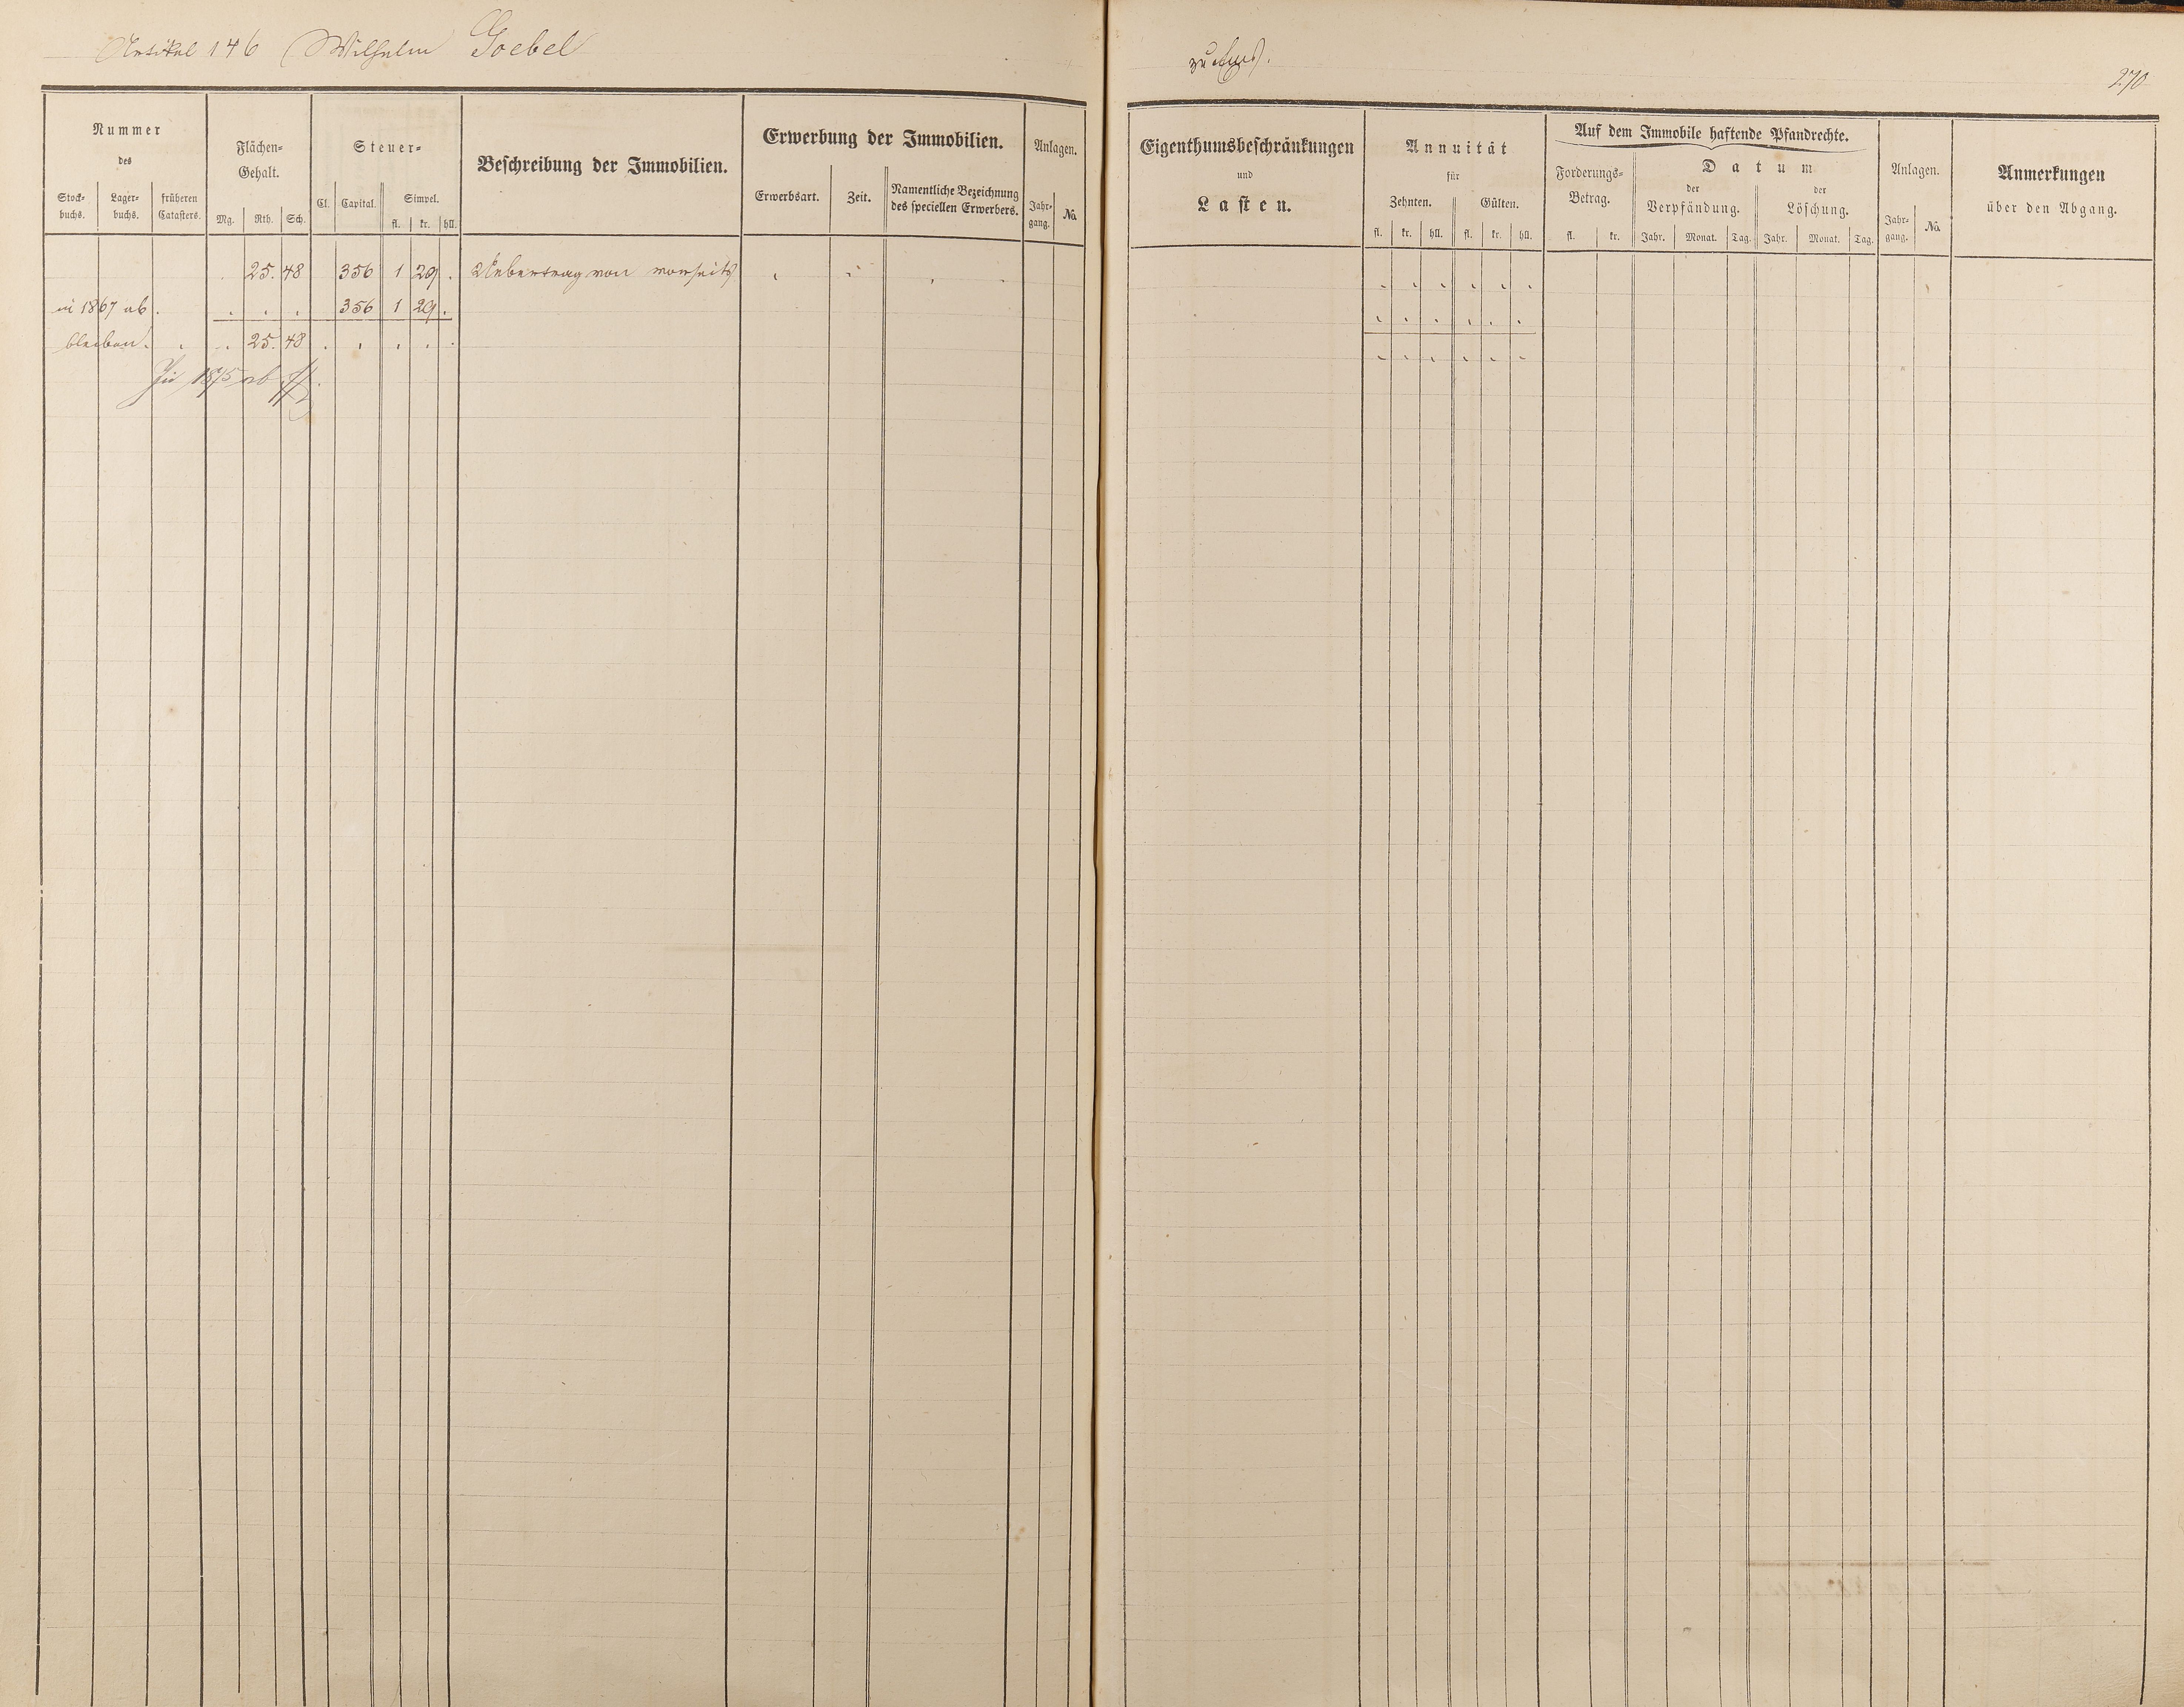 Artikel 146 Wilhelm Goebel
zu Ems.
270
Nummer
des
Stock-
buchs.
Lager-
buchs.
früheren
Catasters.
Flächen-
Gehalt.
Mg. Rth. Sch.
Steuer-
Cl. Capital. Simpel.
fl. kr. hll.
Beschreibung der Immobilien.
Erwerbung der Immobilien.
Erwerbsart. Zeit. Namentliche Bezeichnung
des speciellen Erwerbers.
Anlagen.
Jahr-
gang. No.
Eigenthumsbeschränkungen
und
Lasten.
Annuität
für
Zehnten. Gülten.
fl. kr. hll. fl. kr. hll.
Auf dem Immobile haftende Pfandrechte.
Forderungs-
Betrag.
fl. kr.
Datum
der
Verpfändung.
Jahr. Monat. Tag.
der
Löschung.
Jahr. Monat. Tag.
Anlagen.
Jahr-
gang. No.
Anmerkungen
über den Abgang.
. 25. 48 356 1 29 . Uebertrag von vorseits
in 1867 ab . . . . 356 1 29 .
bleiben. . . 25. 48 . . . . .
In 1875 ab